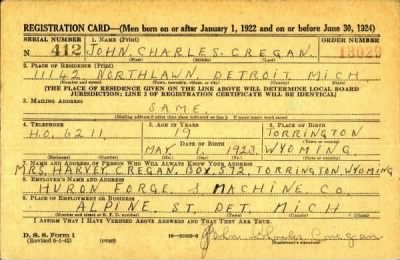 REGISTRATION CARD—(Men born on or after January 1, 1922 and on or before June 30, 1924)
SERIAL NUMBER 1. NAME (Print) ORDER NUMBER
N 412 JOHN. CHARLES. CREGAN. 13029
(First) (Middle) (Last)
2. PLACE OF RESIDENCE (Print)
11142 NORTHLAWN. DETROIT MICH
(Number and street) (Town, township, village, or city) (County) (State)
(THE PLACE OF RESIDENCE GIVEN ON THE LINE ABOVE WILL DETERMINE LOCAL BOARD
JURISDICTION; LINE 2 OF REGISTRATION CERTIFICATE WILL BE IDENTICAL)
3. MAILING ADDRESS
SAME.
(Mailing address if other than place indicated on line 2. If same insert word same)
4. TELEPHONE 5. AGE IN YEARS 6. PLACE OF BIRTH
H.O. 6211. 19 TORRINGTON
DATE OF BIRTH (Town or county)
MAY 1. 1923. WYOMING.
(Exchange) (Number) (Mo.) (Day) (Yr.) (State or country)
7. NAME AND ADDRESS OF PERSON WHO WILL ALWAYS KNOW YOUR ADDRESS
MRS. HARVEY. CREGAN. BOX. 572. TORRINGTON, WYOMING
8. EMPLOYER'S NAME AND ADDRESS
HURON. FORGE. & MACHINE. CO.
9. PLACE OF EMPLOYMENT OR BUSINESS
ALPINE. ST. DET. MICH
(Number and street or R. F. D. number) (Town) (County) (State)
I AFFIRM THAT I HAVE VERIFIED ABOVE ANSWERS AND THAT THEY ARE TRUE.
D. S. S. Form 1
(Revised 6-1-42) (over)
John Charles Cregan
(Registrant's signature)